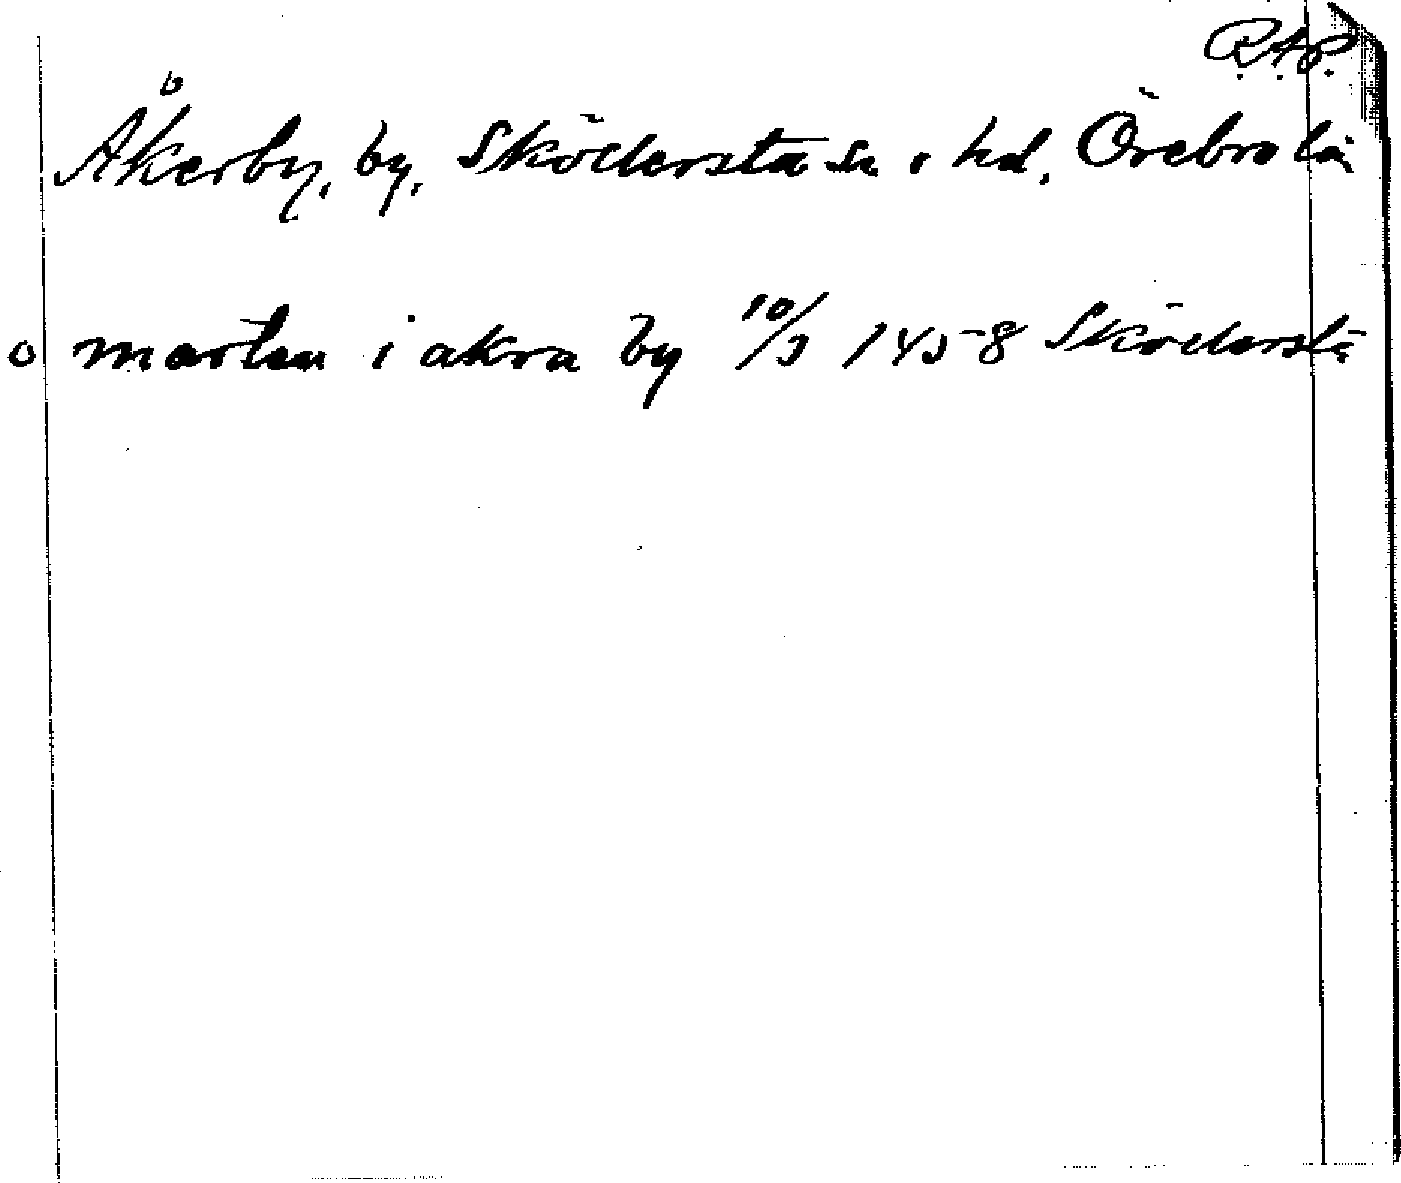 R.A.P.
Åkerby, by, Sköllersta sn o hd. Örebro län
o marten i akra by 10/3 1458 Sköllersta